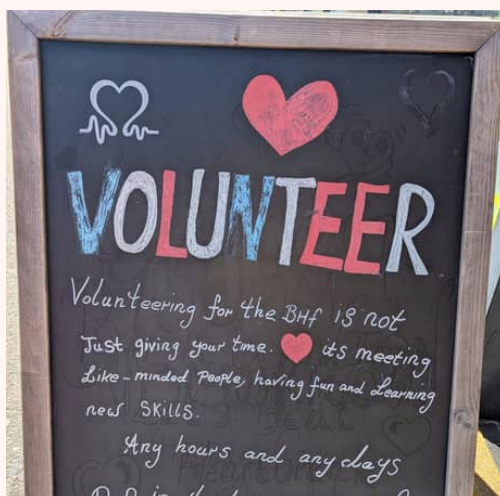 VOLUNTEER
Volunteering for the BHf is not
Just giving your time. its meeting
Like-minded People, having fun and Learning
new SKILLS.
Any hours and any days